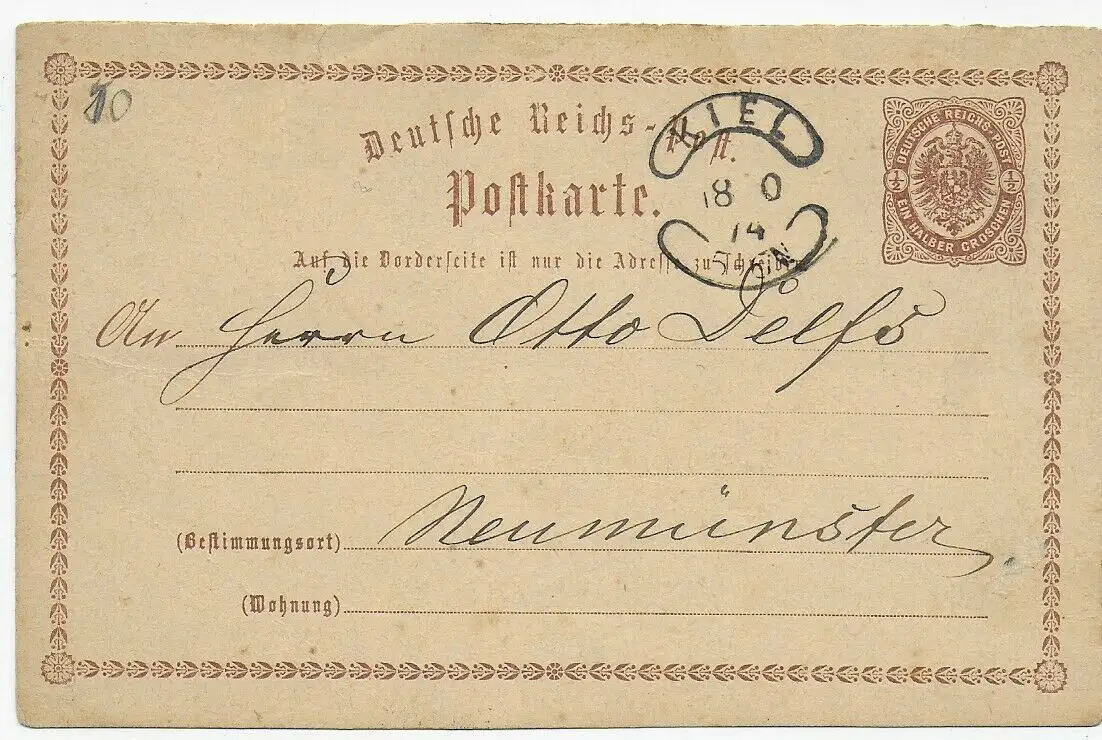 50
Deutsche Reichs-Post.
KIEL
Postkarte.
18 0
74
5-6 N
DEUTSCHE REICHS-POST
½ ½
EIN HALBER GROSCHEN
Auf die Vorderseite ist nur die Adresse zu schreiben.
An Herrn Otto Delfs
(Bestimmungsort) Neumünster
(Wohnung)